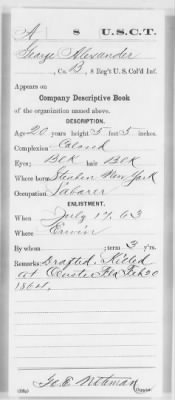 A | 8 | U.S.C.T.
George Alexander
, Co. B, 8 Reg't U. S. Col'd Inf.
Appears on
Company Descriptive Book
of the organization named above.
DESCRIPTION.
Age 20 years; height 5 feet 5 inches.
Complexion Colored
Eyes; Blk hair Blk
Where born Steuben New York
Occupation Laborer
ENLISTMENT.
When July 17, 63
Where Erwin
By whom ; term 3 y'rs.
Remarks: Drafted. Killed
at Fla Feb 20
1864.
Copyist.